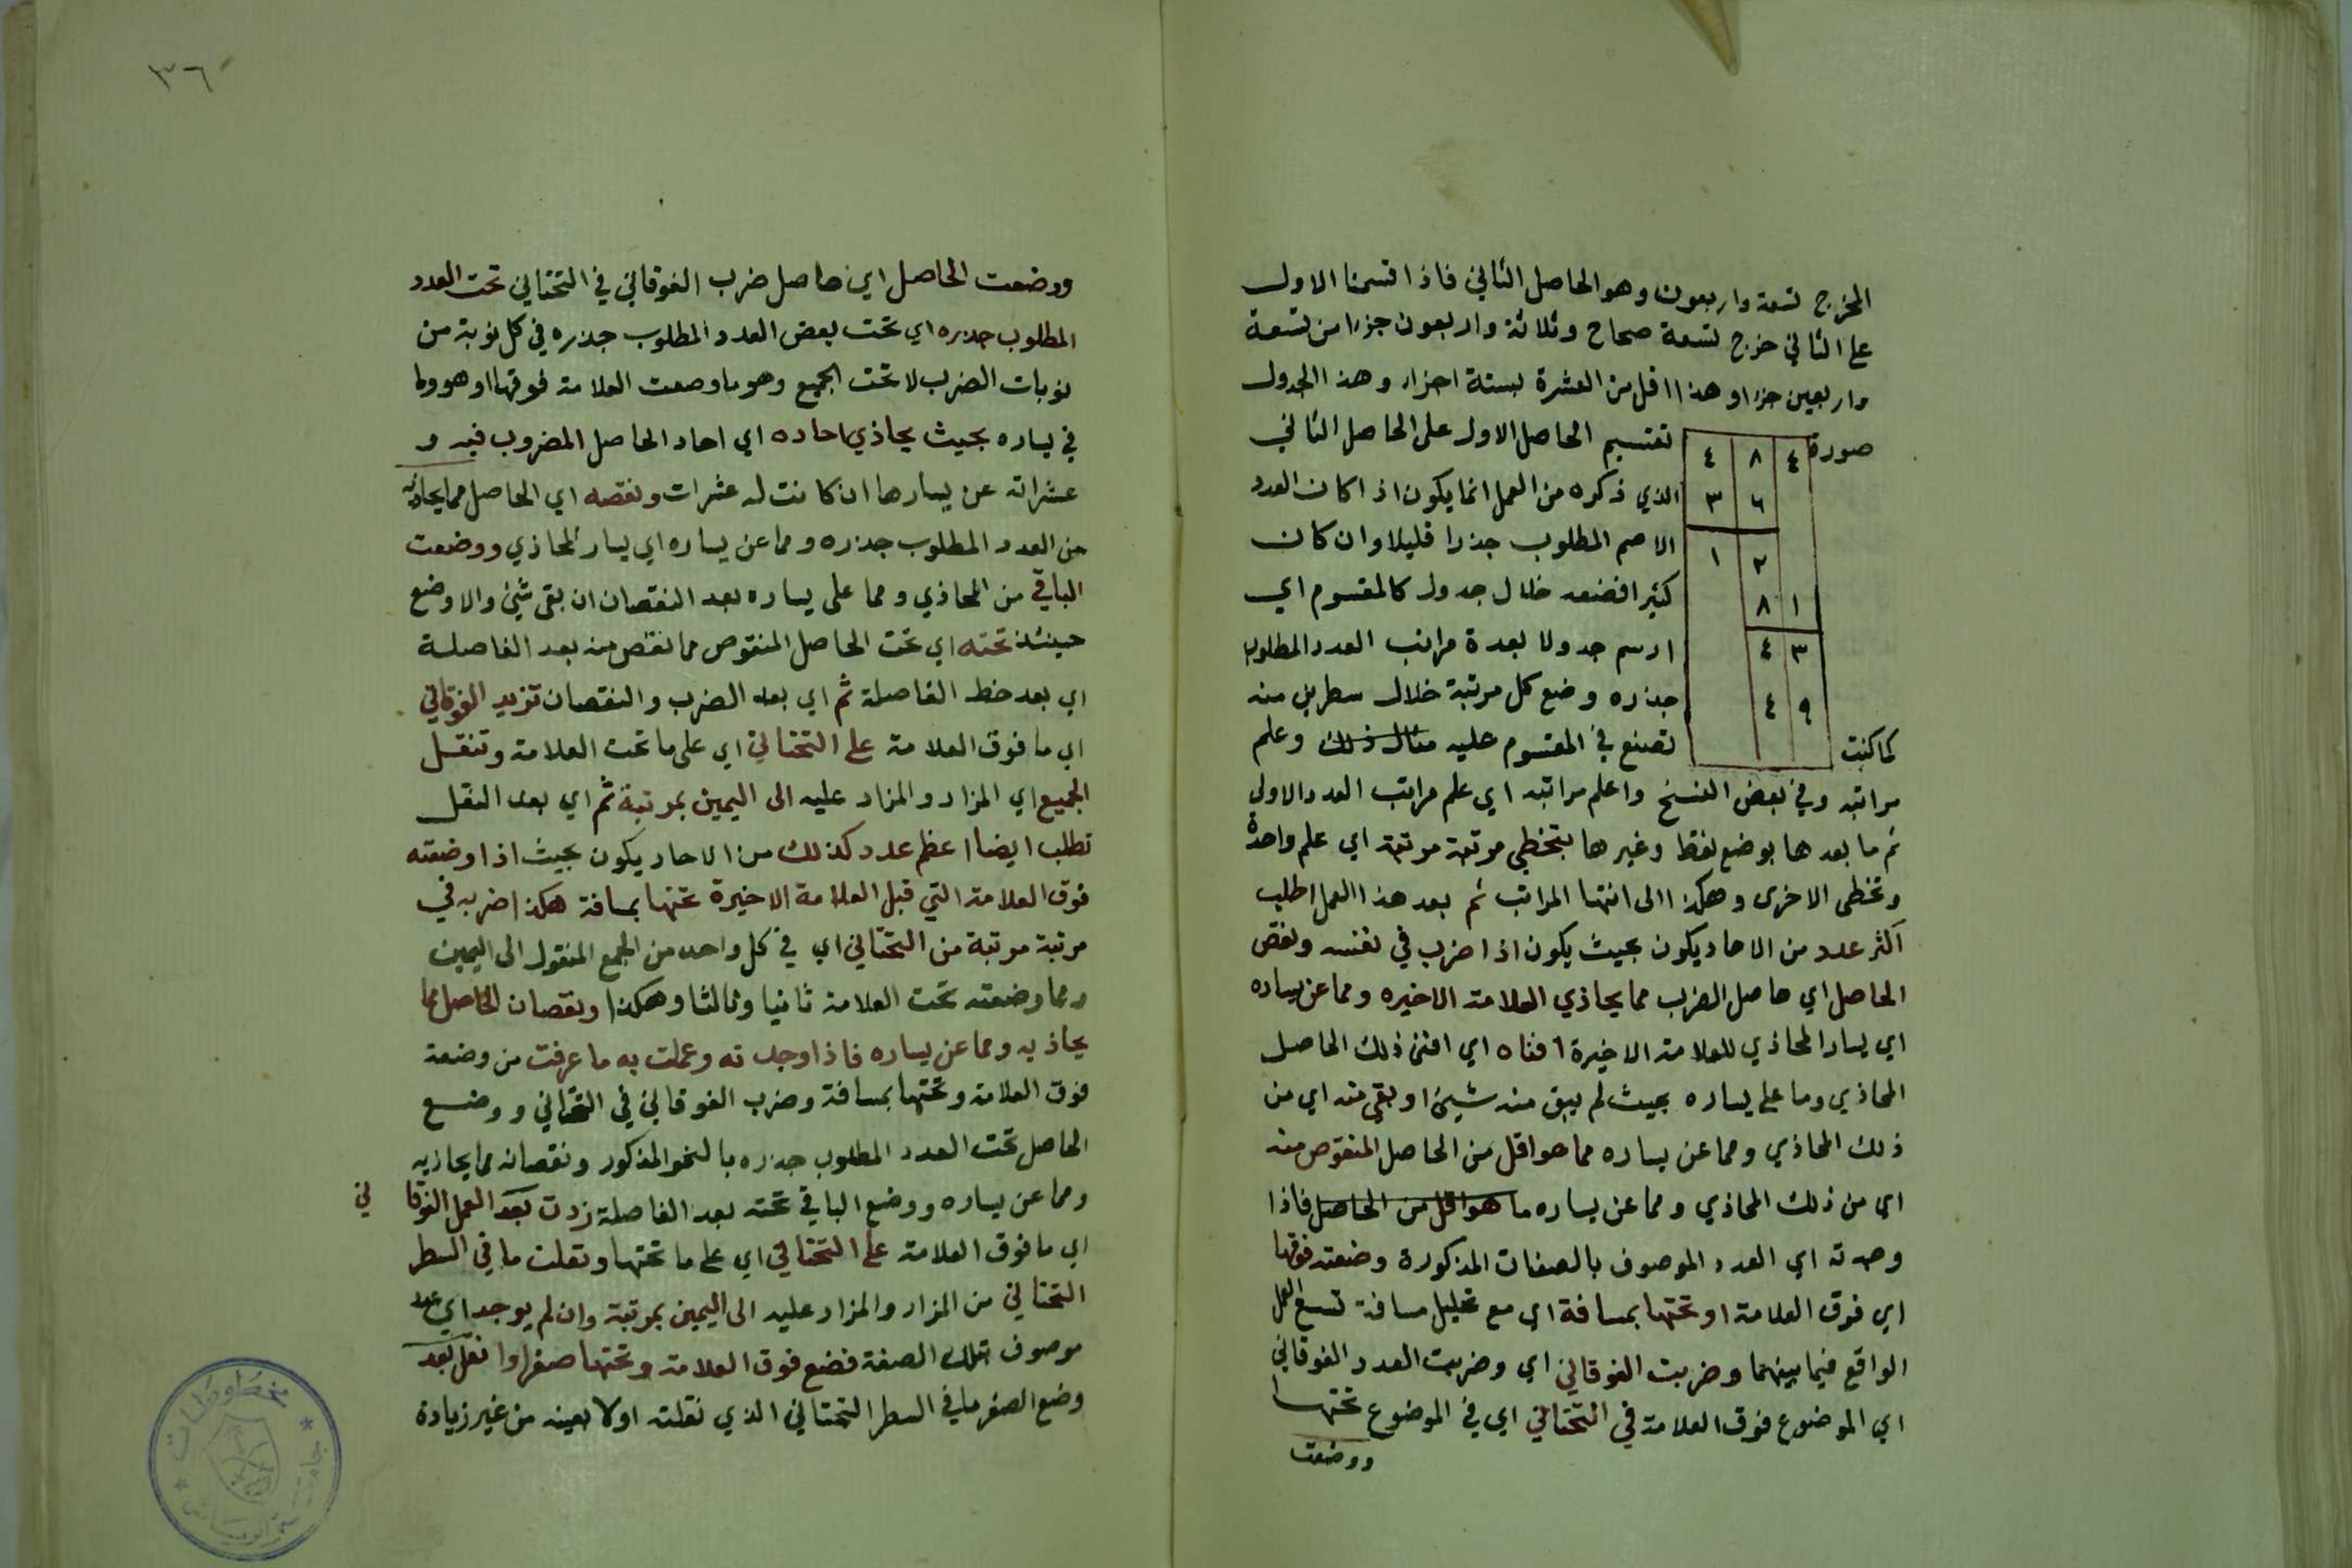 المخرج تسعة واربعون وهو الحاصل الثاني فاذا قسمنا الاول
على الثاني خرج تسعة صحاح وثلاثة واربعون جزءا من تسعة
واربعين جزءا وهذا اقل من العشرة بستة اجزاء وهذا الجدول
صورة تقسيم الحاصل الاول على الحاصل الثاني
٤ ٨ ٤
٣ ٦
١ ٢
٨ ١
٤ ٣
٤ ٩
الذي ذكره من العمل انما يكون اذا كان العدد
الاصم المطلوب جذرا قليلا وان كان
كثيرا فضعه خلال جدول كالمقسوم اي
ارسم جدولا بعدة مراتب العدد المطلوب
جذره وضع كل مرتبة خلال سطرين منه
كما كنت تصنع في المقسوم عليه مثال ذلك وعلم
مراتبه وفي بعض النسخ واعلم مراتبه اي علم مراتب العدد الاولى
ثم ما بعدها بوضع نقط وغيرها بتخطي مرتبة مرتبة اي علم واحدة
وتخطى الاخرى وهكذا الى انتها المراتب ثم بعد هذا العمل اطلب
اكثر عدد من الاحاد يكون بحيث يكون اذا ضرب في نفسه ونقص
الحاصل اي حاصل الضرب مما يحاذي العلامة الاخيره ومما عن يساره
اي يسار المحاذي للعلامة الاخيرة افناه اي افنى ذلك الحاصل
المحاذي وما على يساره بحيث لم يبق منه شيئ او بقي منه اي من
ذلك المحاذي ومما عن يساره مما هو اقل من الحاصل المنقوص منه
اي من ذلك المحاذي ومما عن يساره ما هو اقل من الحاصل فاذا
وجدته اي العدد الموصوف بالصفات المذكورة وضعته فوقها
اي فوق العلامة او تحتها بمسافة اي مع تخليل مسافة تسع العمل
الواقع فيما بينهما وضربت الفوقاني اي وضربت العدد الفوقاني
اي الموضوع فوق العلامة في التحتاني اي في الموضوع تحتها
ووضعت
٣٦
ووضعت الحاصل اي حاصل ضرب الفوقاني في التحتاني تحت العدد
المطلوب جذره اي تحت بعض العدد المطلوب جذره في كل نوبة من
نوبات الضرب لا تحت الجميع وهو ما وضعت العلامة فوقها او هو وما
في يساره بحيث يحاذي احاده اي احاد الحاصل المضروب فيه و
عشراته عن يسارها ان كانت له عشرات ونقصه اي الحاصل مما يحاذيه
من العدد المطلوب جذره ومما عن يساره اي يسار المحاذي ووضعت
الباقي من المحاذي ومما على يساره بعد النقصان ان بقى شيئ والا وضع
حينئذ تحته اي تحت الحاصل المنقوص مما نقص منه بعد الفاصلة
اي بعد خط الفاصلة ثم اي بعد الضرب والنقصان تزيد الفوقاني
اي ما فوق العلامة على التحتاني اي على ما تحت العلامة وتنقل
الجميع اي المزاد والمزاد عليه الى اليمين بمرتبة ثم اي بعد النقل
تطلب ايضا اعظم عدد كذلك من الاحاد يكون بحيث اذا وضعته
فوق العلامة التي قبل العلامة الاخيرة تحتها بمسافة هكذا ضربه في
مرتبة مرتبة من التحتاني اي في كل واحد من الجمع المنقول الى اليمين
ومما وضعته تحت العلامة ثانيا وثالثا وهكذا ونقصان الحاصل مما
يحاذيه ومما عن يساره فاذا وجدته وعملت به ما عرفت من وضعه
فوق العلامة وتحتها بمسافة وضرب الفوقاني في التحتاني ووضع
الحاصل تحت العدد المطلوب جذره بالنحو المذكور ونقصانه مما يحاذيه
ومما عن يساره ووضع الباقي تحته بعد الفاصلة زدت بعد العمل الفوقا ني
اي ما فوق العلامة على التحتاني اي على ما تحتها ونقلت ما في السطر
التحتاني من المزاد والمزاد عليه الى اليمين بمرتبة وان لم يوجد اي عدد
موصوف بتلك الصفة فضع فوق العلامة وتحتها صفرا وانقل بعد
وضع الصفر ما في السطر التحتاني الذي نقلته اولا بعينه من غير زيادة
مخطوطات